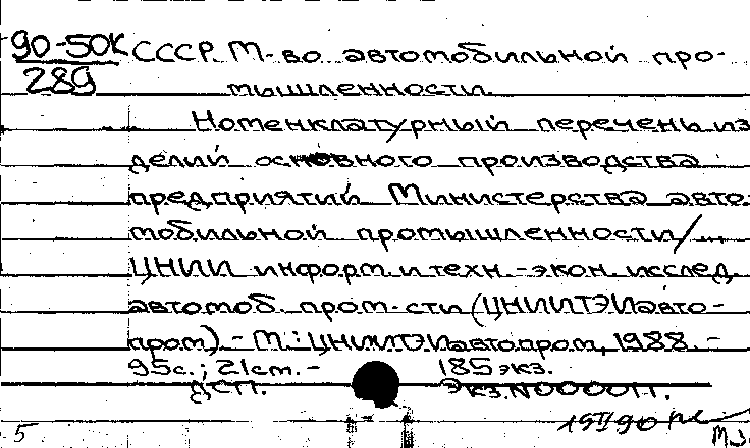 90-50К СССР. М-во автомобильной про-
289 мышленности.
Номенклатурный перечень из
делий основного производства
предприятий Министерства авто
мобильной промышленности/...
ЦНИИ информ. и техн.-экон. исслед.
автомоб. пром-сти (ЦНИИТЭИавто-
пром).- М.: ЦНИИТЭИавтопром, 1988.-
95с.; 21см.- 185 экз.
ДСП. Экз. N000011.
15 II 90
5